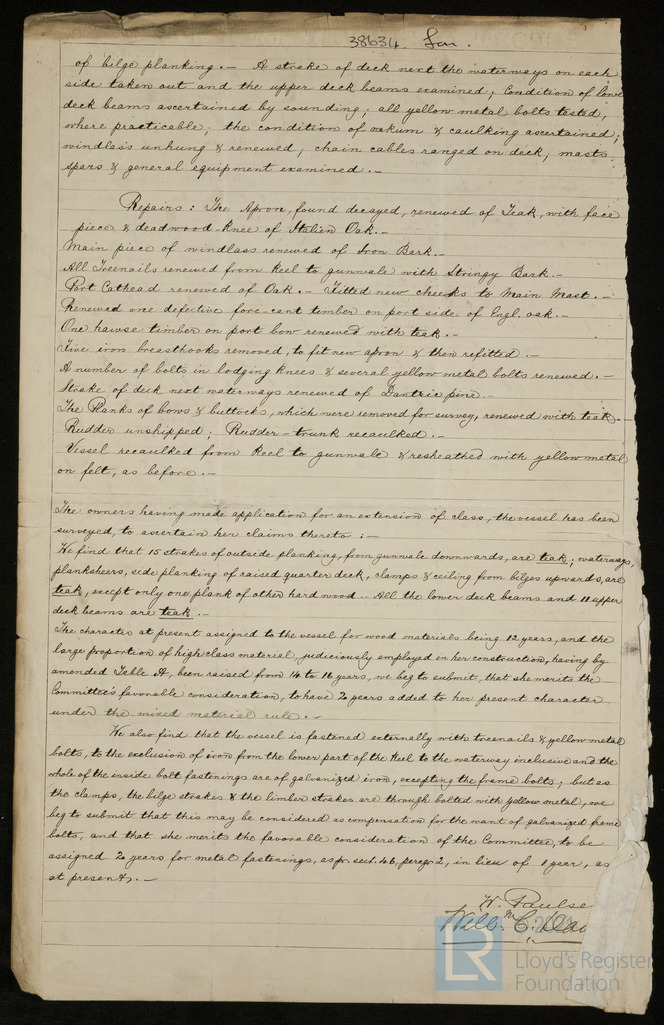 38634 Lon.
of bilge planking. — A strake of deck next the waterways on each
side taken out and the upper deck beams examined; Condition of lower
deck beams ascertained by sounding; all yellow metal bolts tested,
where practicable; the condition of oakum & caulking ascertained;
windlass unhung & renewed, chain cables ranged on deck, masts
spars & general equipment examined. —
Repairs: The Apron, found decayed, renewed of Teak, with face
piece & deadwood-knee of Italien Oak. —
Main piece of windlass renewed of Iron Berk. —
All Treenails renewed from Keel to gunwale with Stringy Bark. —
Port Cathead renewed of Oak. — Fitted new cheeks to Main Mast. —
Renewed one defective fore-cant timber on port side of Engl. oak. —
One hawse timber on port bow renewed with teak. —
Five iron breasthooks removed, to fit new apron & then refitted. —
A number of bolts in lodging knees & several yellow metal bolts renewed. —
Strake of deck next waterways renewed of Dantzic pine. —
The Planks of bows & buttocks, which were removed for survey, renewed with teak. —
Rudder unshipped; Rudder-trunk recaulked. —
Vessel recaulked from Keel to gunwale & resheathed with yellow metal
on felt, as before. —
The owners having made application for an extension of class, the vessel has been
surveyed, to ascertain her claims thereto: —
We find that 15 strakes of outside planking, from gunwale downwards, are teak; waterways,
planksheers, side planking of raised quarter deck, clamps & ceiling from bilges upwards, are
teak, except only one plank of other hard wood. — All the lower deck beams and 11 upper
deck beams are teak. —
The character at present assigned to the vessel for wood materials being 12 years, and the
large proportion of high class material, judiciously employed in her construction, having by
amended Table A, been raised from 14 to 16 years, we beg to submit, that she merits the
Committee's favorable consideration, to have 2 years added to her present character
under the mixed material rule. —
We also find that the vessel is fastened externally with treenails & yellow metal
bolts, to the exclusion of iron from the lower part of the Keel to the waterway inclusive and the
whole of the inside bolt fastenings are of galvanized iron, excepting the frame bolts; but as
the clamps, the bilge strakes & the limber strakes are through bolted with yellow metal, we
beg to submit that this may be considered as compensation for the want of galvanized frame
bolts, and that she merits the favorable consideration of the Committee, to be
assigned 2 years for metal fastenings, as pr. sect. 46, paragr 2, in lieu of 1 year, as
at present. —
W. Paulse
Will.m C. Da
LR Lloyd's Register
Foundation